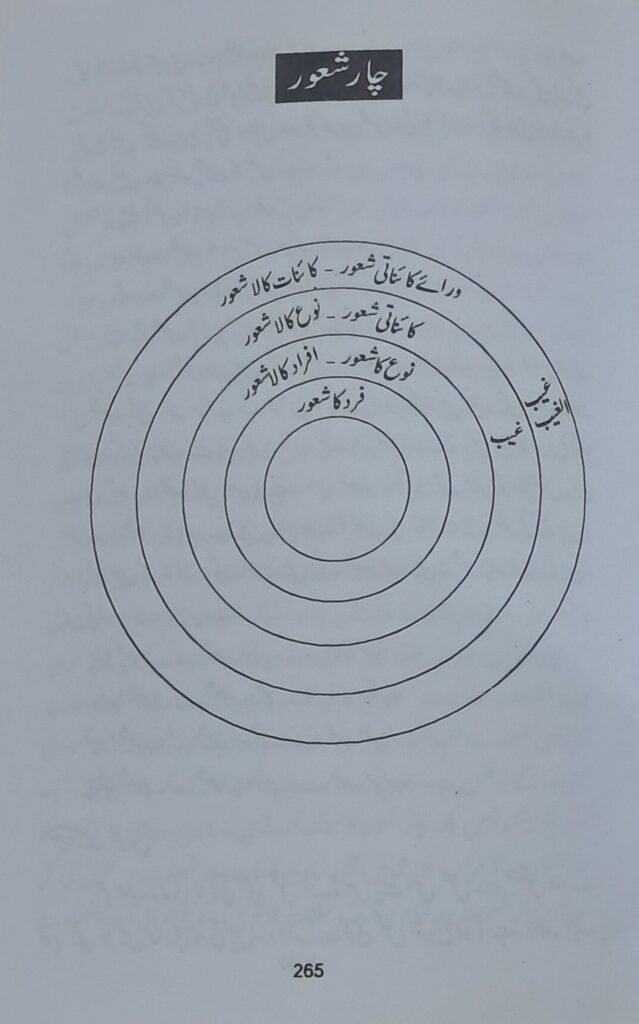 چار شعور
ورائے کائناتی شعور - کائنات کا لاشعور
کائناتی شعور - نوع کا لاشعور
نوع کا شعور - افراد کا لاشعور
فرد کا شعور
غیب
غیب
الغیب
265